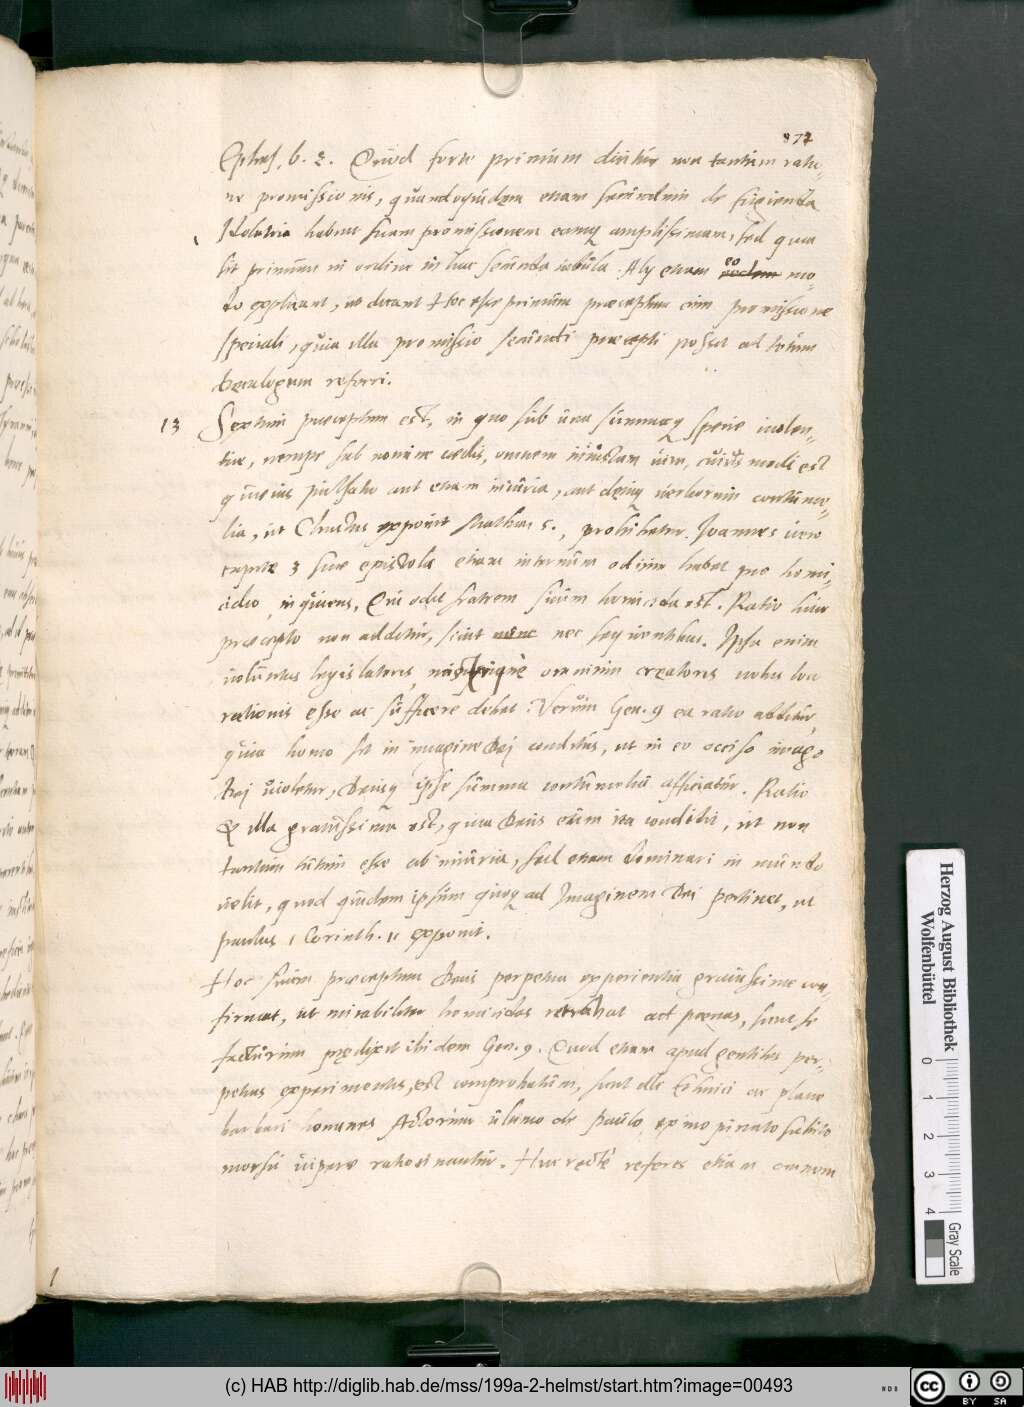 872
Ephes. 6. 2. Quod forte primum dicitur non tantum ratio-
ne promissionis, quandoquidem etiam secundum de fugienda
Idolatria habeat suam promissionem eamq amplissimam, sed quia
sit primum in ordine in hac secunda tabula. Alij etiam eo mo-
do explicant, ut dicant Hoc esse primum praeceptum cum promissione
speciali, quia illa promissio secundi praecepti possit ad totum
Decalogum referri.
13 Sextum praeceptum est, in quo sub una summaq specie violen-
tiae, nempe sub nomine caedis, omnem iniustam vim, cuius modi est
quaevis pulsatio aut etiam iniuria, aut deniq verborum contume-
lia, ut Christus exponit Matthaei 5., prohibetur. Joannes vero
capite 3 suae epistolae etiam internum odium habet pro homi-
cidio, inquiens, Qui odit fratrem suum homicida est. Ratio huic
praecepto non additur, sicut nec sequentibus. Ipsa enim
voluntas legislatoris, omnium creatoris nobis loco
rationis esse ac sufficere debet. Verum Gen. 9 ea ratio additur,
quia homo sit in imagine Dei conditus, ut in eo occiso imago
Dei violetur, Deusq ipse summa contumelia afficiatur. Ratio
& illa gravissima est, quia Deus eum ita condidit, ut non
tantum tutum esse ab iniuria, sed etiam dominari in mundo
velit, quod quidem ipsum quoq ad Imaginem Dei pertinet, ut
paulus 1 Corinth. 11 exponit.
Hoc suum praeceptum Deus perpetua experientia gravissime con-
firmat, ut mirabiliter homicidas retrahat ad poenas, sicut se
facturum praedixit ibidem Gen. 9. Quod etiam apud gentiles per-
petuis experimentis, est comprobatum, sicut illi Ethnici ac plane
barbari homines Actorum ultimo de Paulo, ex improviso subito
morsu viperae ratiocinantur. Huc recte referes etiam omnem
Herzog August Bibliothek
Wolfenbüttel
0 1 2 3 4
Gray Scale
(c) HAB http://diglib.hab.de/mss/199a-2-helmst/start.htm?image=00493
cc BY SA